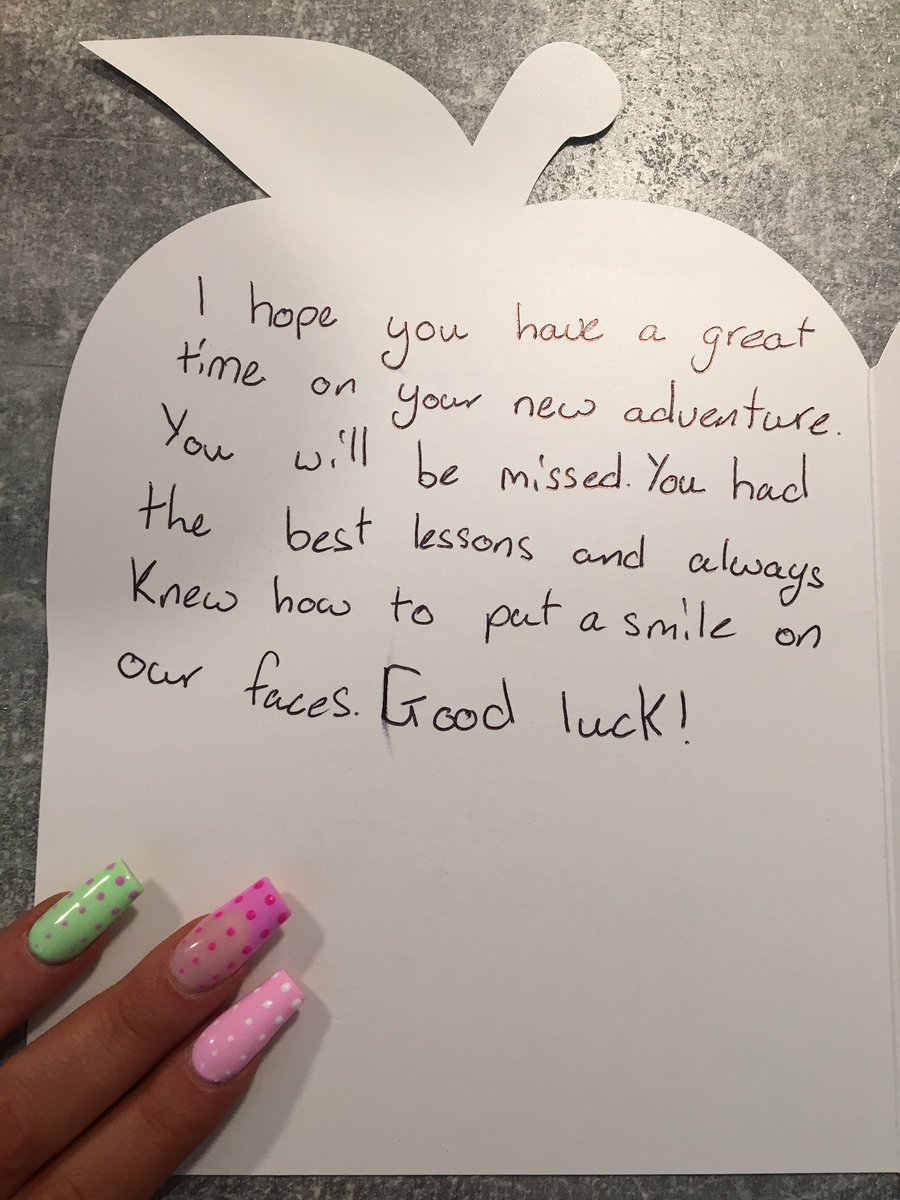 I hope you have a great
time on your new adventure.
You will be missed. You had
the best lessons and always
Knew how to put a smile on
our faces. Good luck!